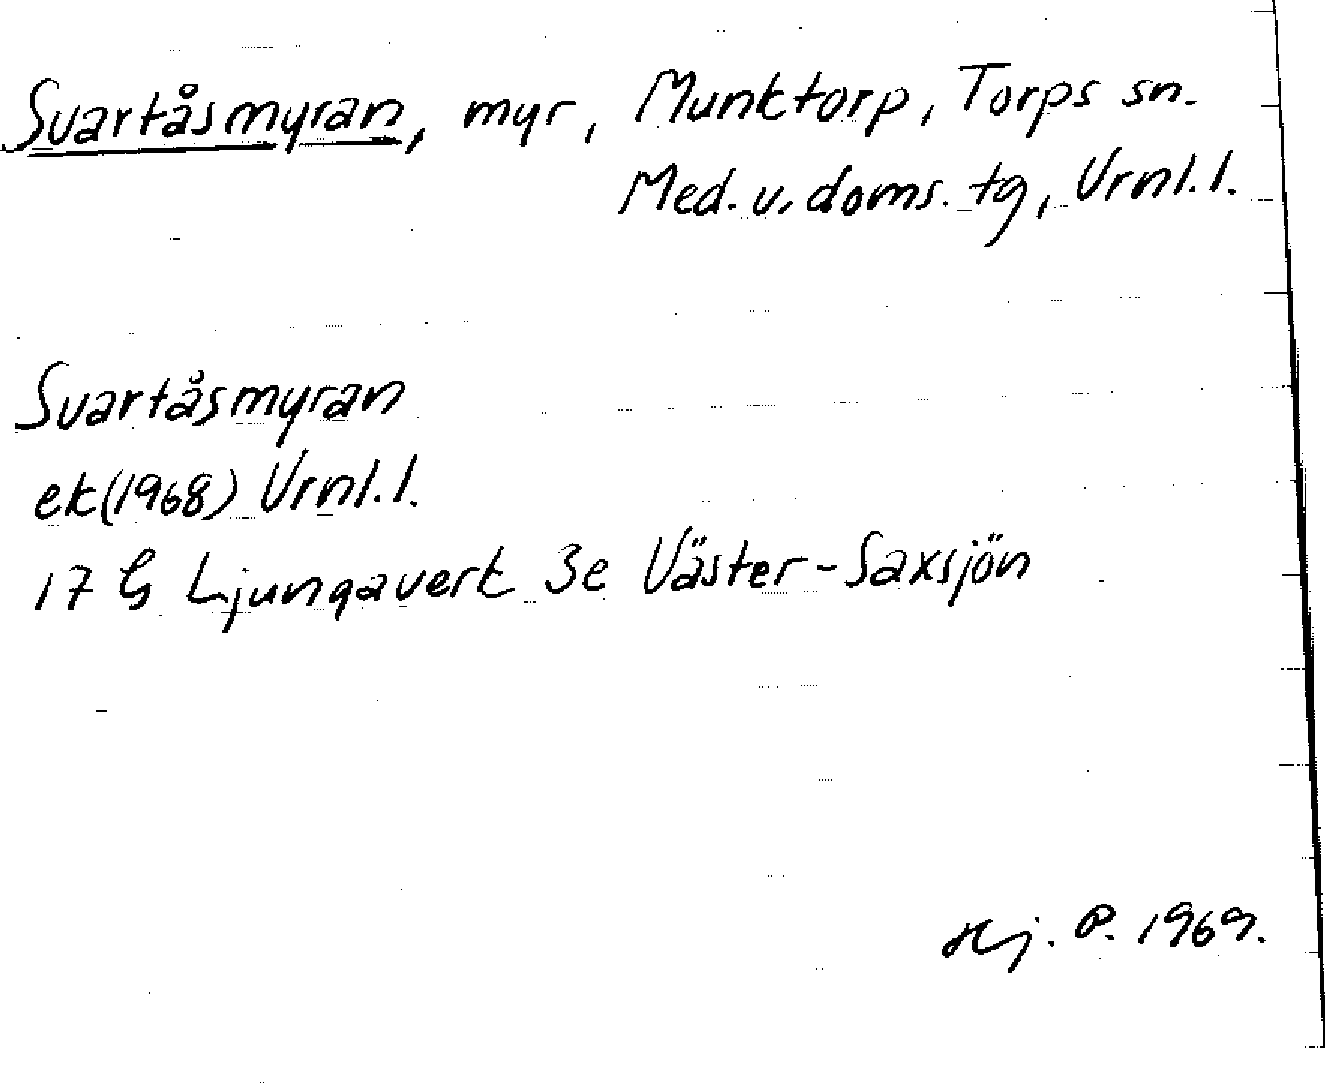 Svartåsmyran, myr, Munktorp, Torps sn.
Med. v. doms. tg, Vrnl. l.
Svartåsmyran
ek (1968) Vrnl. l.
17 G Ljungaverk 3e Väster-Saxsjön
Hj. P. 1969.